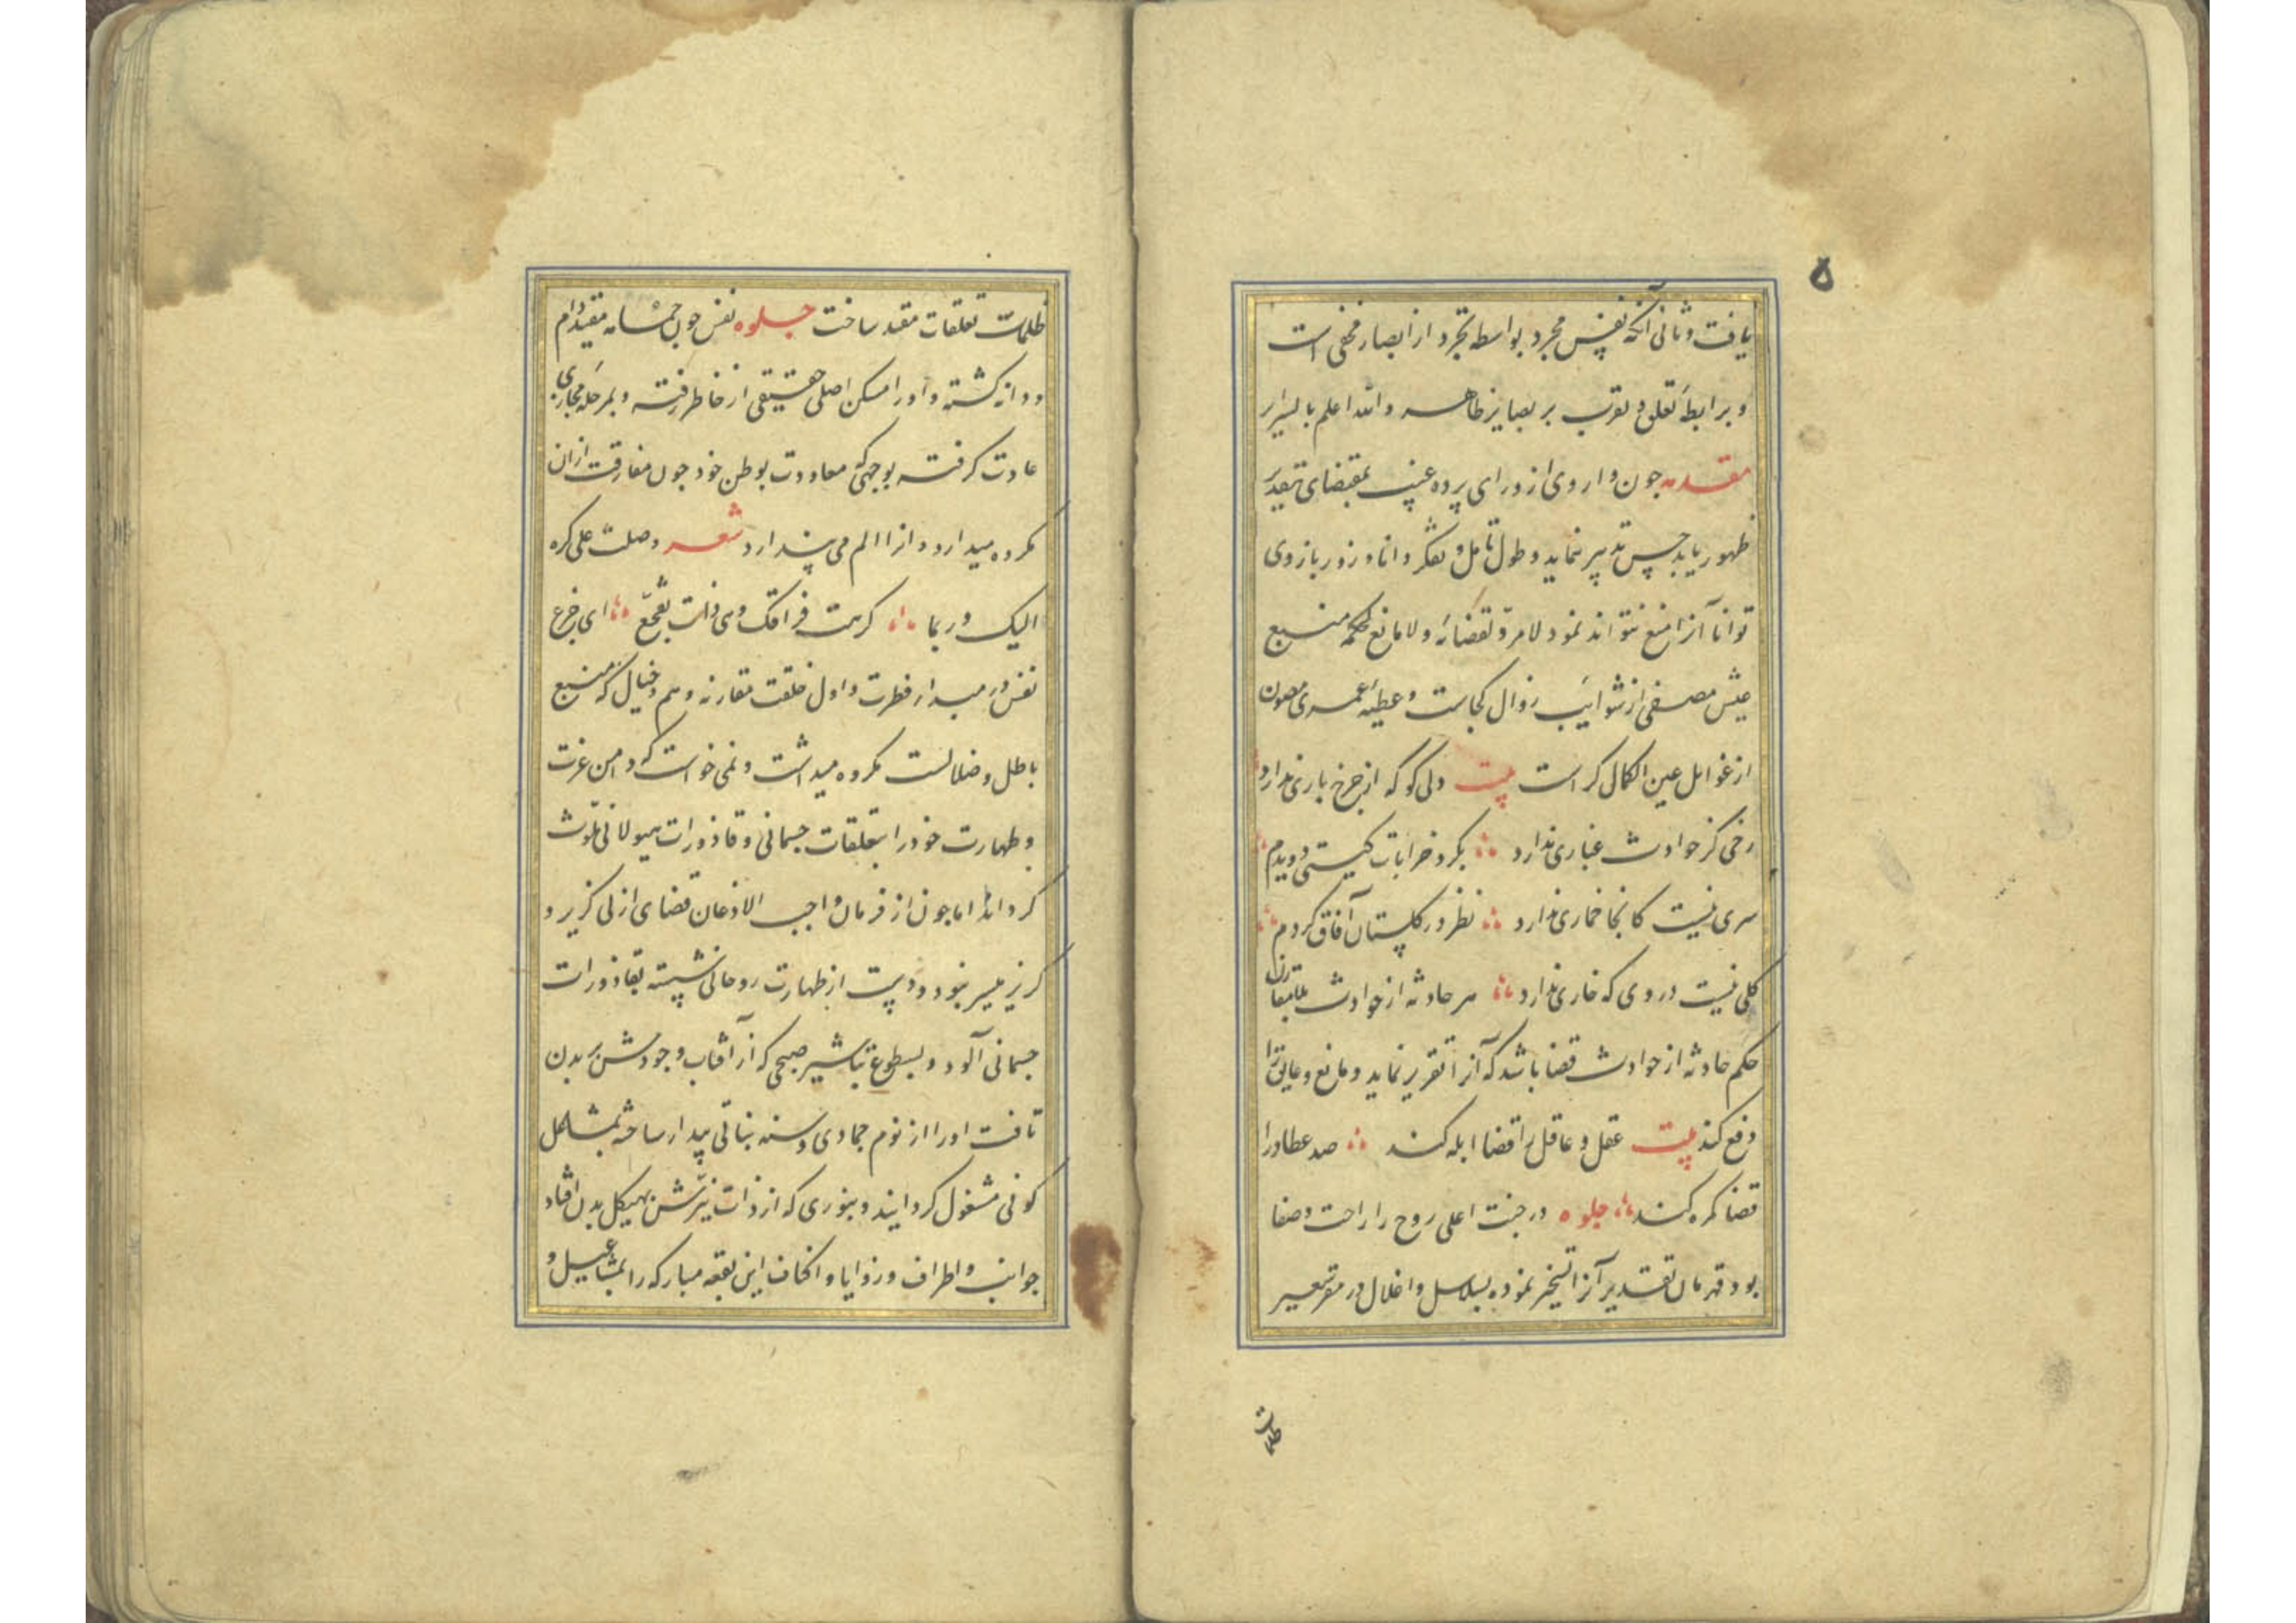 ۵
یافت و ثانی آنکه نفس مجرد بواسطه تجرد از ابصار مخفی است
و برابطه تعلق و تقرب بر بصایر ظاهر والله اعلم بالسرایر
مقدمه چون واروی از ورای پرده غیب بمقتضای تقدیر
ظهور یابد حسن تدبیر نماید و طول تامل و تفکر دانا و زور بازوی
توانا آنرا منع نتواند نمود لا مرد لقضائه و لا مانع لحکمه منبع
عیش مصفی از شوایب زوال کجاست و عطیه عمری مصون
از غوایل عین الکمال کراست بیت دلی کو که از چرخ باری ندارد
رخی کز حوادث غباری ندارد بگرد خرابات گیتی دویدم
سری نیست کانجا خماری ندارد نظر در گلستان آفاق کردم
گلی نیست در وی که خاری ندارد هر حادثه از حوادث
حکم حادثه از حوادث قضا باشد که آنرا تقریر نماید و مانع و عایق را
دفع کند بیت عقل و عاقل را قضا ابله کند صد عطا را
قضا کمره کند جلوه در جنت اعلی روح را راحت و صفا
بود قهرمان تقدیر آنرا تسخیر نموده بسلاسل و اغلال در مقر سعیر
ظلمات
ظلمات تعلقات مقید ساخت جلوه نفس چون مقید دام
و دانه گشته و او را مسکن اصلی حقیقی از خاطر رفته و بمرحله مجازی
عادت گرفته بوجهی که معاودت بوطن خود چون مفارقت ازان
مکروه میدارد و ازا الم می پندارد شعر وصلت علی کره
الیک و ربما کرهت فراقک وی ذات تفجع ای جزع
نفس در مبدا فطرت و اول خلقت مقارنه وهم و خیال که منبع
باطل و ضلالست مکروه میداشت و نمی خواست که دامن عزت
و طهارت خود را بتعلقات جسمانی و قاذورات هیولانی ملوث
گرداند اما چون از فرمان واجب الاذعان قضای ازلی گزیر و
گریز میسر نبود دست از طهارت روحانی شسته بقاذورات
جسمانی آلود و بسطوع تباشیر صبحی که از آفتاب وجودش بر بدن
تافت او را از نوم جمادی و سنه نباتی بیدار ساخته بمشاکل
کونی مشغول گردانید و بنوری که از ذات نیرش بهیکل بدن افتاد
جوانب و اطراف و زوایا و اکناف این بقعه مبارکه را بمشاعیل و